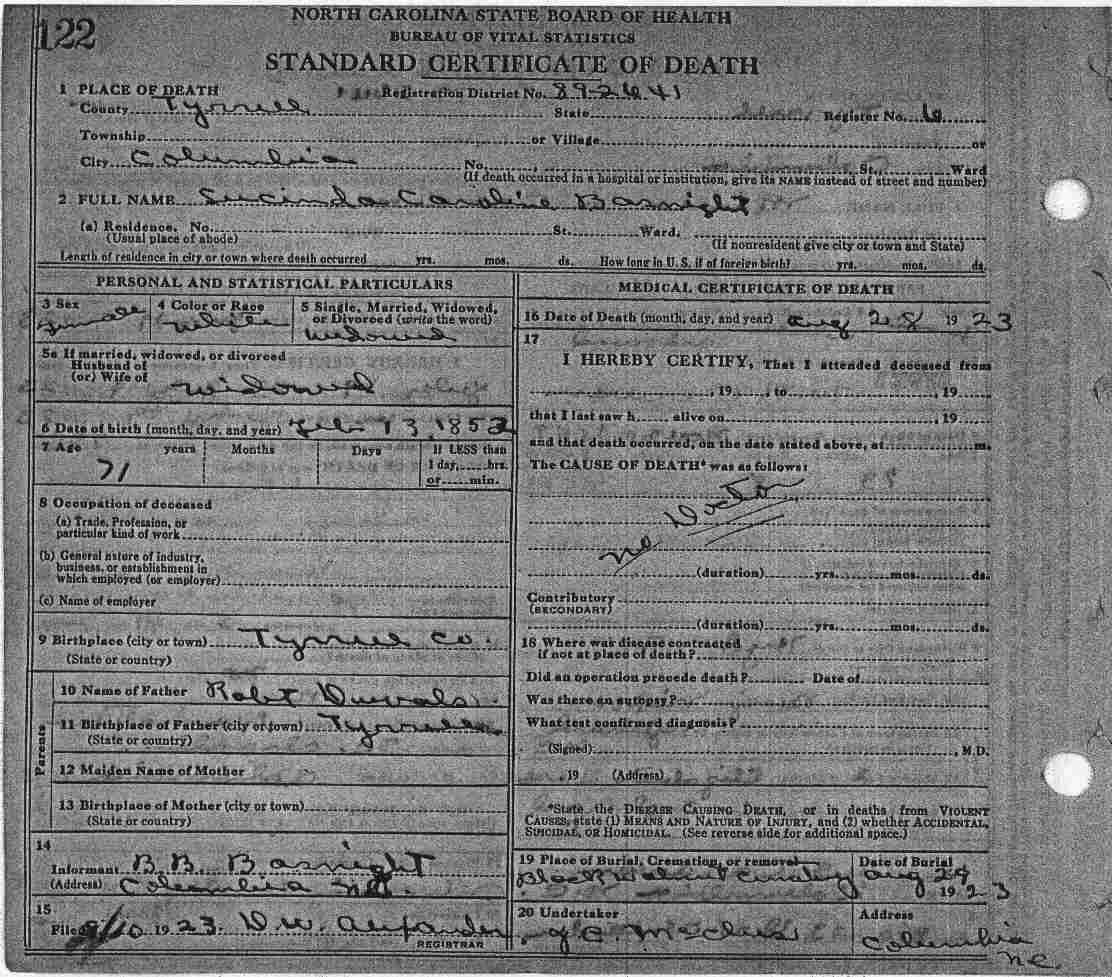 122
NORTH CAROLINA STATE BOARD OF HEALTH
BUREAU OF VITAL STATISTICS
STANDARD CERTIFICATE OF DEATH
1 PLACE OF DEATH Registration District No. 89-2641
County Tyrrell State Register No. 6
Township or Village or
City Columbia No. St., Ward
(If death occurred in a hospital or institution, give its NAME instead of street and number)
2 FULL NAME Lucinda Caroline Basnight
(a) Residence. No. St. Ward.
(Usual place of abode) (If nonresident give city or town and State)
Length of residence in city or town where death occurred yrs. mos. ds. How long in U. S. if of foreign birth? yrs. mos. ds.
PERSONAL AND STATISTICAL PARTICULARS
3 Sex 4 Color or Race 5 Single, Married, Widowed,
or Divorced (write the word)
Female White Widowed
5a If married, widowed, or divorced
Husband of
(or) Wife of Widowed
6 Date of birth (month, day, and year) Feb 13, 1852
7 Age years Months Days If LESS than
1 day, hrs.
71 or min.
8 Occupation of deceased
(a) Trade, Profession, or
particular kind of work
(b) General nature of industry,
business, or establishment in
which employed (or employer)
(c) Name of employer
9 Birthplace (city or town) Tyrrell Co.
(State or country)
Parents
10 Name of Father Robt
11 Birthplace of Father (city or town) Tyrrell
(State or country)
12 Maiden Name of Mother
13 Birthplace of Mother (city or town)
(State or country)
14
Informant B. B. Basnight
(Address) Columbia N.C.
15
Filed 9/10 1923. D. W. Alexander
REGISTRAR
MEDICAL CERTIFICATE OF DEATH
16 Date of Death (month, day, and year) Aug 28 1923
17
I HEREBY CERTIFY, That I attended deceased from
, 19 , to , 19
that I last saw h alive on , 19
and that death occurred, on the date stated above, at m.
The CAUSE OF DEATH* was as follows:
No Doctor
(duration) yrs. mos. ds.
Contributory
(SECONDARY)
(duration) yrs. mos. ds.
18 Where was disease contracted
if not at place of death?
Did an operation precede death? Date of
Was there an autopsy?
What test confirmed diagnosis?
(Signed) , M.D.
, 19 (Address)
*State the DISEASE CAUSING DEATH, or in deaths from VIOLENT
CAUSES, state (1) MEANS AND NATURE OF INJURY, and (2) whether ACCIDENTAL,
SUICIDAL, OR HOMICIDAL. (See reverse side for additional space.)
19 Place of Burial, Cremation, or removal Date of Burial
Black Walnut Cemetery Aug 29
1923
20 Undertaker Address
J C. Columbia
N.C.